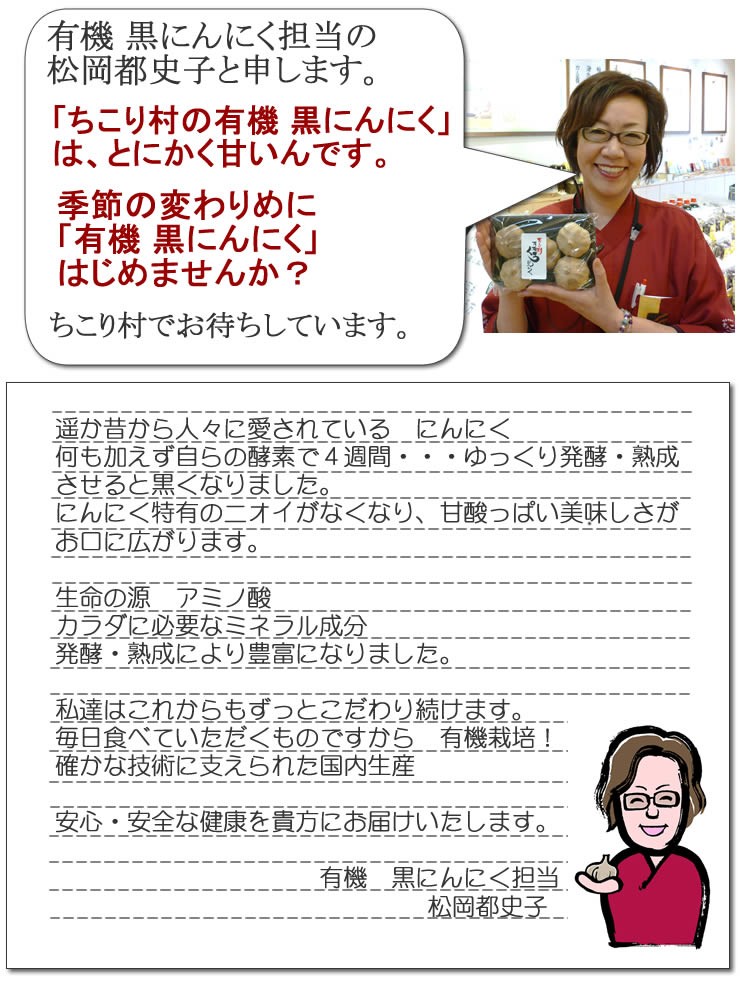 有機 黒にんにく担当の
松岡都史子と申します。
「ちこり村の有機 黒にんにく」
は、とにかく甘いんです。
季節の変わりめに
「有機 黒にんにく」
はじめませんか？
ちこり村でお待ちしています。
遥か昔から人々に愛されている　にんにく
何も加えず自らの酵素で４週間・・・ゆっくり発酵・熟成
させると黒くなりました。
にんにく特有のニオイがなくなり、甘酸っぱい美味しさが
お口に広がります。
生命の源　アミノ酸
カラダに必要なミネラル成分
発酵・熟成により豊富になりました。
私達はこれからもずっとこだわり続けます。
毎日食べていただくものですから　有機栽培！
確かな技術に支えられた国内生産
安心・安全な健康を貴方にお届けいたします。
有機　黒にんにく担当
松岡都史子